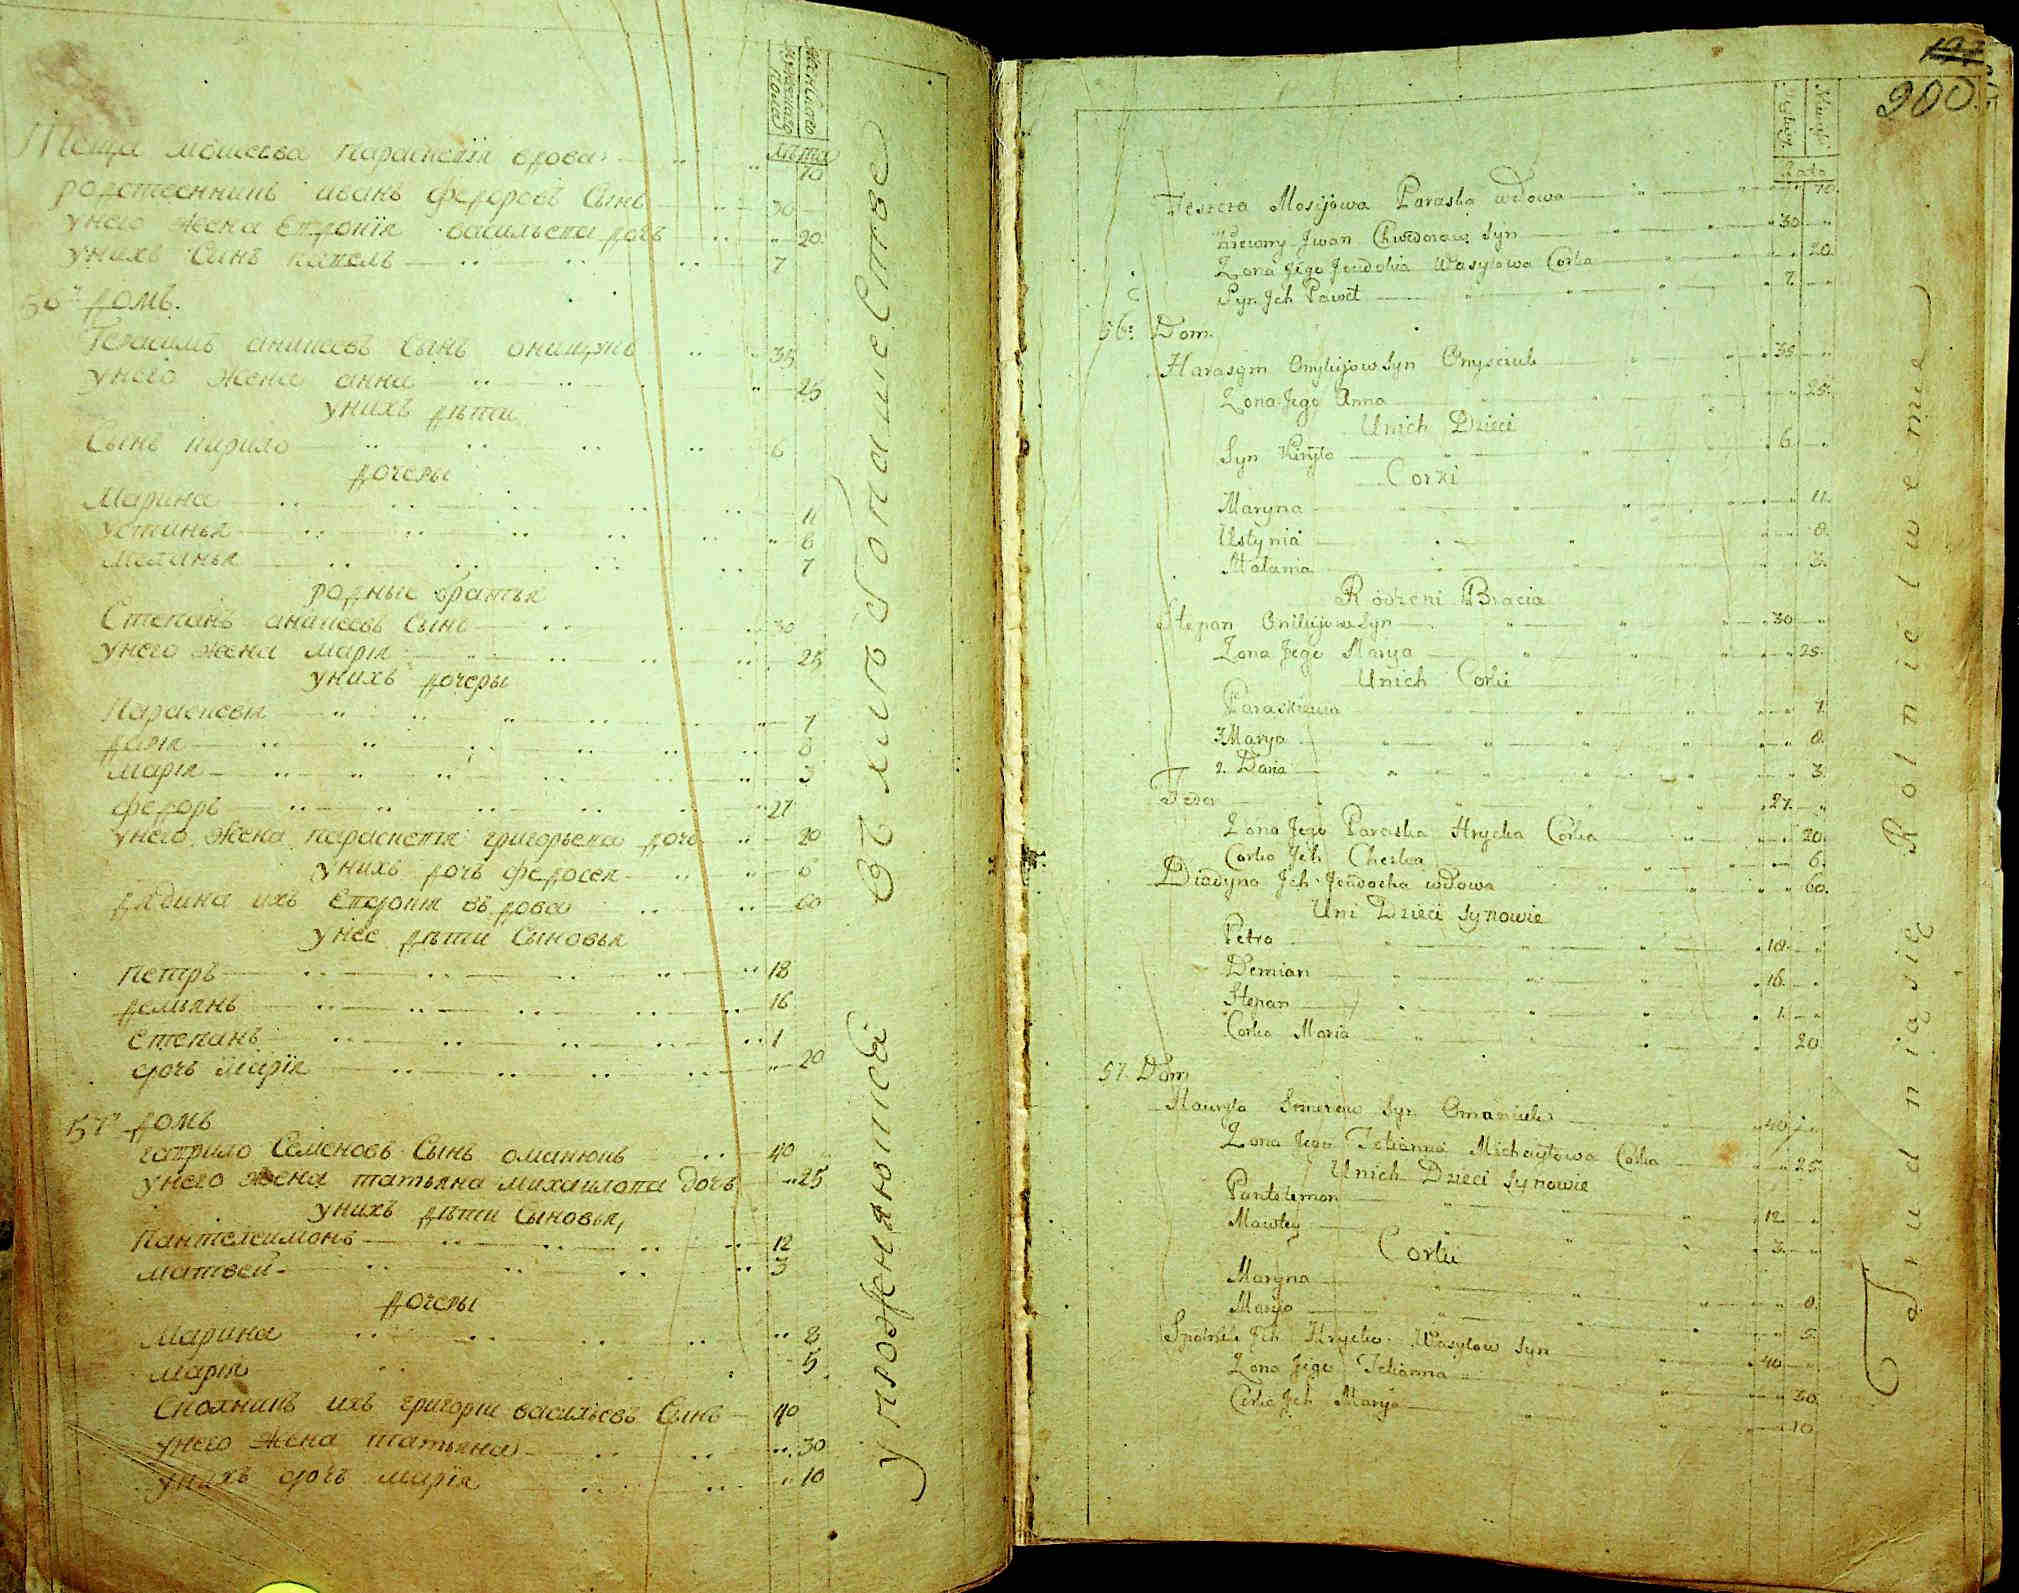 мужеска
женска
лѣта
Теща мошеева параскевiя вдова 70
родственникъ иванъ федоровъ Сынъ 30
унего жена Евдокiя васильева дочь 20
унихъ Сынъ павелъ 7
56й домъ.
Герасимъ аникеевъ Сынъ онищукъ 35
унего жена анна 25
унихъ дѣти
Сынъ кирило 6
дочеры
Марина 11
устинья 8
Меланья 7
родные братья
Степанъ аникеевъ Сынъ 30
унего жена марiя 25
унихъ дочеры
Параскевiя 7
дарiя 8
марiя 3
федоръ 27
унего жена параскевiя григорьева дочь 20
унихъ дочь федосея 6
дядина ихъ Евдокiя вдова 60
унее дѣти Сыновья
петръ 18
демьянъ 16
Степанъ 1
дочь марiя 20
57й домъ
гаврило Семеновъ Сынъ оманюкъ 40
унего жена татьяна михаилова дочь 25
унихъ дѣти Сыновья,
Пантелеимонъ 12
матвей 3
дочеры
Марина 8
марiя 5
Сполникъ ихъ григорiи васильевъ Сынъ 40
унего жена татьяна 30
унихъ дочь марiя 10
упражняются въ хлебопашестве
200
Lata
Teszcza Mosijowa Paraska wdowa 70.
Krewny Jwan Chwedorow Syn 30
Zona Jego Jewdokia Wasylowa Corka 20
Syn Jch Paweł 7.
56: Dom.
Harasym Onykijow Syn Onysciuk 35
Zona Jego Anna 25.
Unich Dzieci
Syn Kiryło 6
Corki
Maryna 11.
Ustynia 8.
Małania 3.
Rodzeni Bracia
Stepan Onikijow Syn 30
Zona Jego Marya 25.
Unich Corki
Paraskiewia 7.
3. Marya 8.
2. Daria 3.
Fedor 27.
Zona Jego Paraska Hrycka Corka 20.
Corka Jch Cheska 6.
Diadyna Jch Jewdocha wdowa 60.
Uni Dzieci Synowie
Petro 18.
Demian 16.
Stepan 1.
Corka Maria 20.
57. Dom
Hawryło Semenow Syn Omaniuk 40
Zona Jego Tetianna Michayłowa Corka 25.
Unich Dzieci Synowie
Pantelemon 12
Mawtey 3.
Corki
Maryna 8.
Marya 5.
Spolnik Jch Hrycko Wasylow Syn 40
Zona Jego Tetianna 30.
Corka Jch Marya 10
Trudnią się Rolnictweme